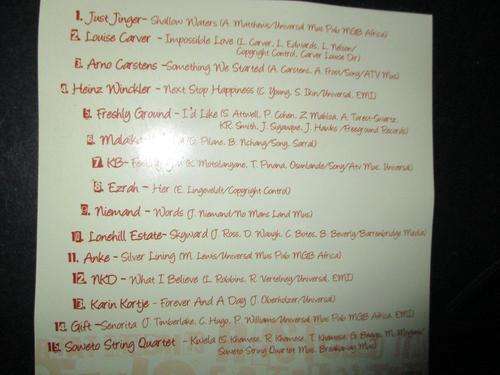 1. Just Jinger- Shallow Waters (A. Matthews/Universal Mus Pub MGB Africa)
2. Louise Carver - Impossible Love (L. Carver, L. Edwards, L. Nelson/
Copyright Control, Carver Louise Dir)
3. Arno Carstens -Something We Started (A. Carstens, A. Fron/Sony/ATV Mus)
4. Heinz Winckler - Next Stop Happiness (E. Young, S. Ikin/Universal, EMI)
5. Freshly Ground - I'd Like (S. Attwell, P. Cohen, Z. Mahola, A. Turest-Swartz,
KR. Smith, J. Hawks /Freeground Records)
6. Malaika G. Pilane, B. Nchang/Sony, Sarral)
7. KB- (G. Motsilanyane, T. Pinana, Osunlande/Sony/Atv Mus, Universal)
8. Ezrah - Her (E. Lingeveldt/Copyright Control)
9. Niemand - Words (J. Niemand/No Mans Land Mus)
10. Lonehill Estate- Skyward (J. Ross, D. Waugh, C. Botes, B. Beverly/Barronbridge Media)
11. Anke - Silver Lining (M. Lewis/Universal Mus Pub MGB Africa)
12. NKD - What I Believe (L. Robbins, R. Vertelney/Universal, EMI)
13. Karin Kortje - Forever And A Day (J. Oberholzer/Universal)
14. Gift -Senorita (J. Timberlake, C. Hugo, P. Williams/Universal Mus Pub MGB Africa, EMI)
15. Soweto String Quartet - Kwela (S. Khemese, R. Khemese, T. Khemese, G. Baggs, M. Mnguni/
Soweto String Quartet Mus, Breakaway Mus)